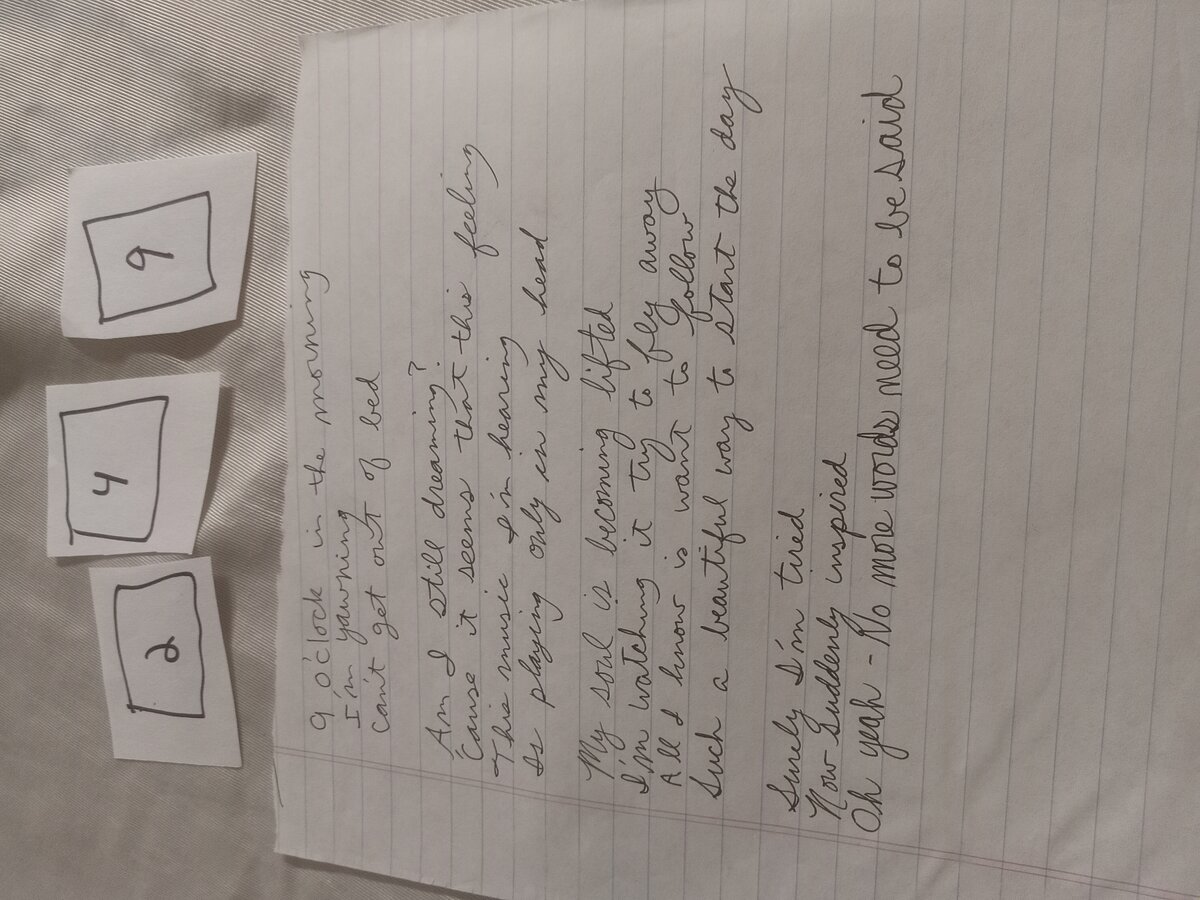 2 4 9
9 o'clock in the morning
I'm yawning
Can't get out of bed
Am I still dreaming?
Cause it seems that this feeling
This music I'm hearing
Is playing only in my head
My soul is becoming lifted
I'm watching it try to fly away
All I know is want to follow
Such a beautiful way to start the day
Surely I'm tired
Now Suddenly inspired
Oh yeah - No more words need to be said